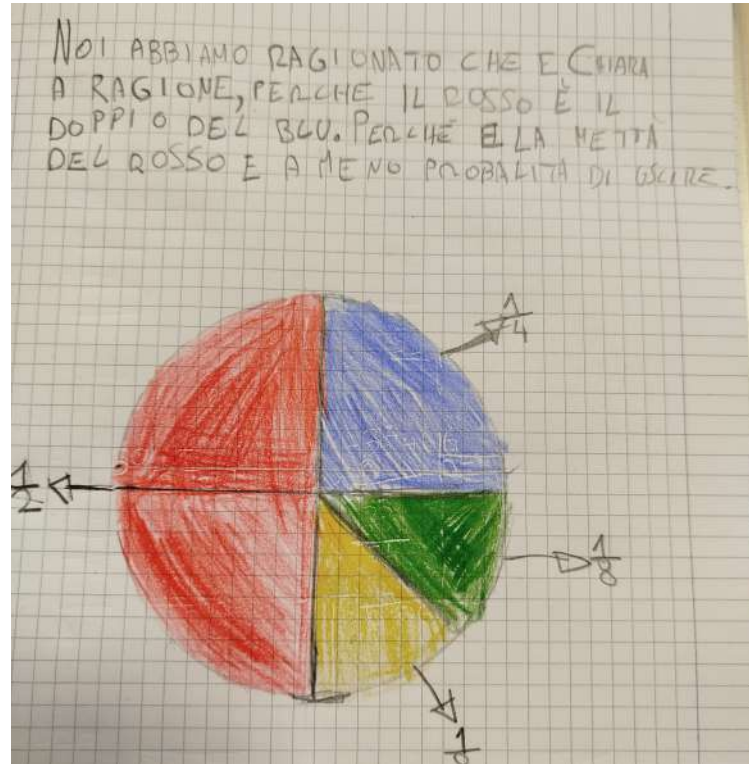 NOI ABBIAMO RAGIONATO CHE E CHIARA
A RAGIONE, PERCHE IL ROSSO È IL
DOPPIO DEL BLU. PERCHÉ E LA METTÀ
DEL ROSSO E A MENO PROBALITÀ DI USCIRE.
1/4
1/2
1/8